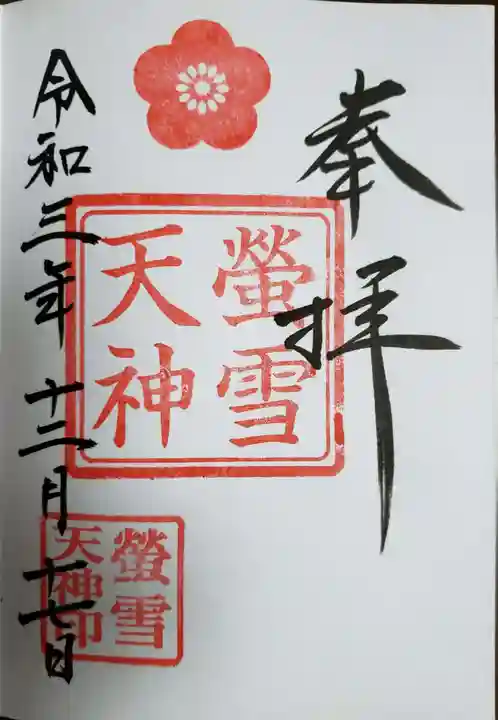 奉拝
螢雪
天神
螢雪
天神印
令和三年十二月十七日